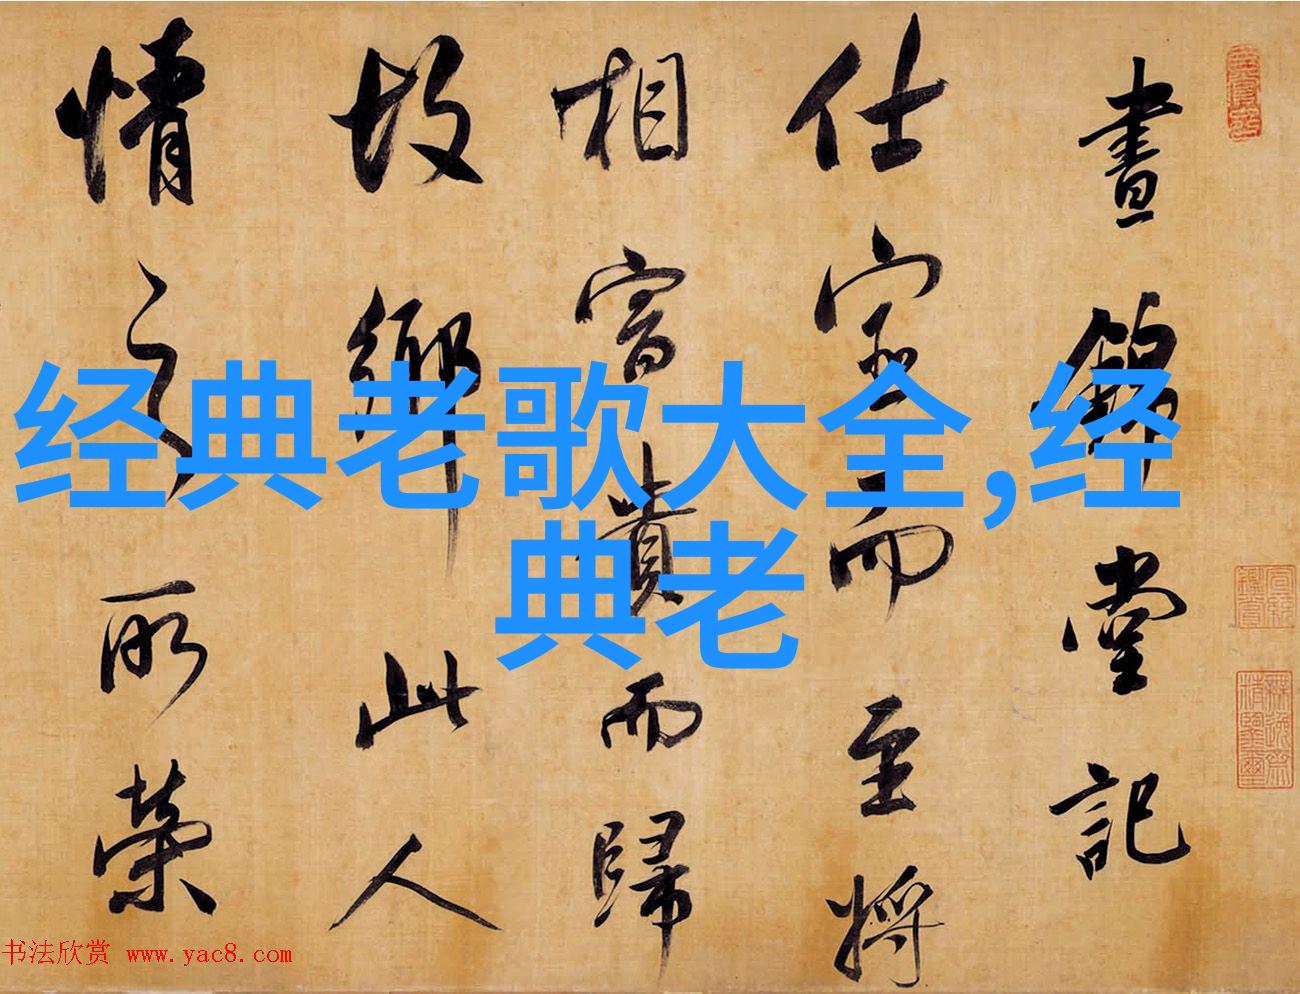 晝錦堂記
仕宦而至將
相富貴而歸
故鄉此人
情之所榮
经典老歌大全,经
典老
书法欣赏 www.yac8.com